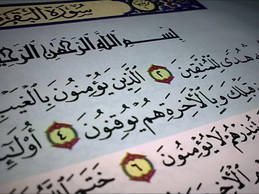 سُورَةُ البَقَرَة
بِسْمِ اللَّهِ الرَّحْمَٰنِ الرَّحِيمِ
هُدًى لِّلْمُتَّقِينَ ٢ الَّذِينَ يُؤْمِنُونَ بِالْغَيْبِ
وَبِالْآخِرَةِ هُمْ يُوقِنُونَ ٤
لَا يُؤْمِنُونَ ٦ خَتَمَ